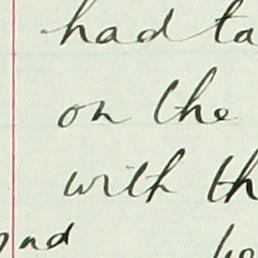 had ta
on the
with th
and